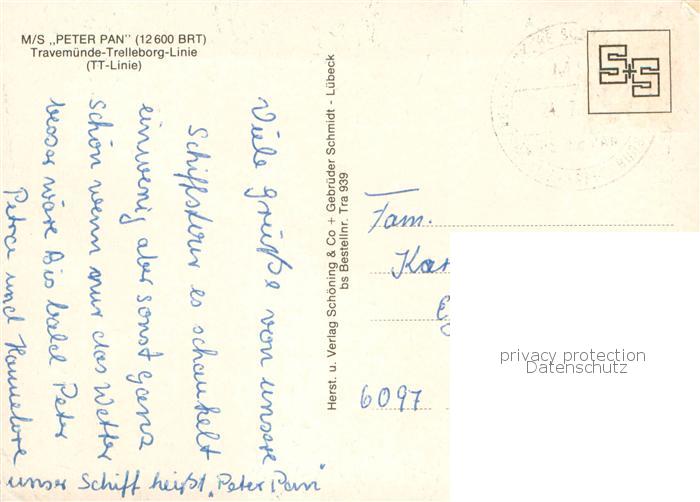 M/S „PETER PAN" (12 600 BRT)
Travemünde-Trelleborg-Linie
(TT-Linie)
Viele Grüße von unsere
Schiffstour es schaukelt
einwenig aber sonst ganz
schön wenn nur das Wetter
besser wäre Bis bald Peter
Petra und Hannelore
unser Schiff heißt „Peter Pan"
Herst. u. Verlag Schöning & Co + Gebrüder Schmidt - Lübeck
bs Bestellnr. Tra 939
S+S
Fam.
6097
privacy protection
Datenschutz